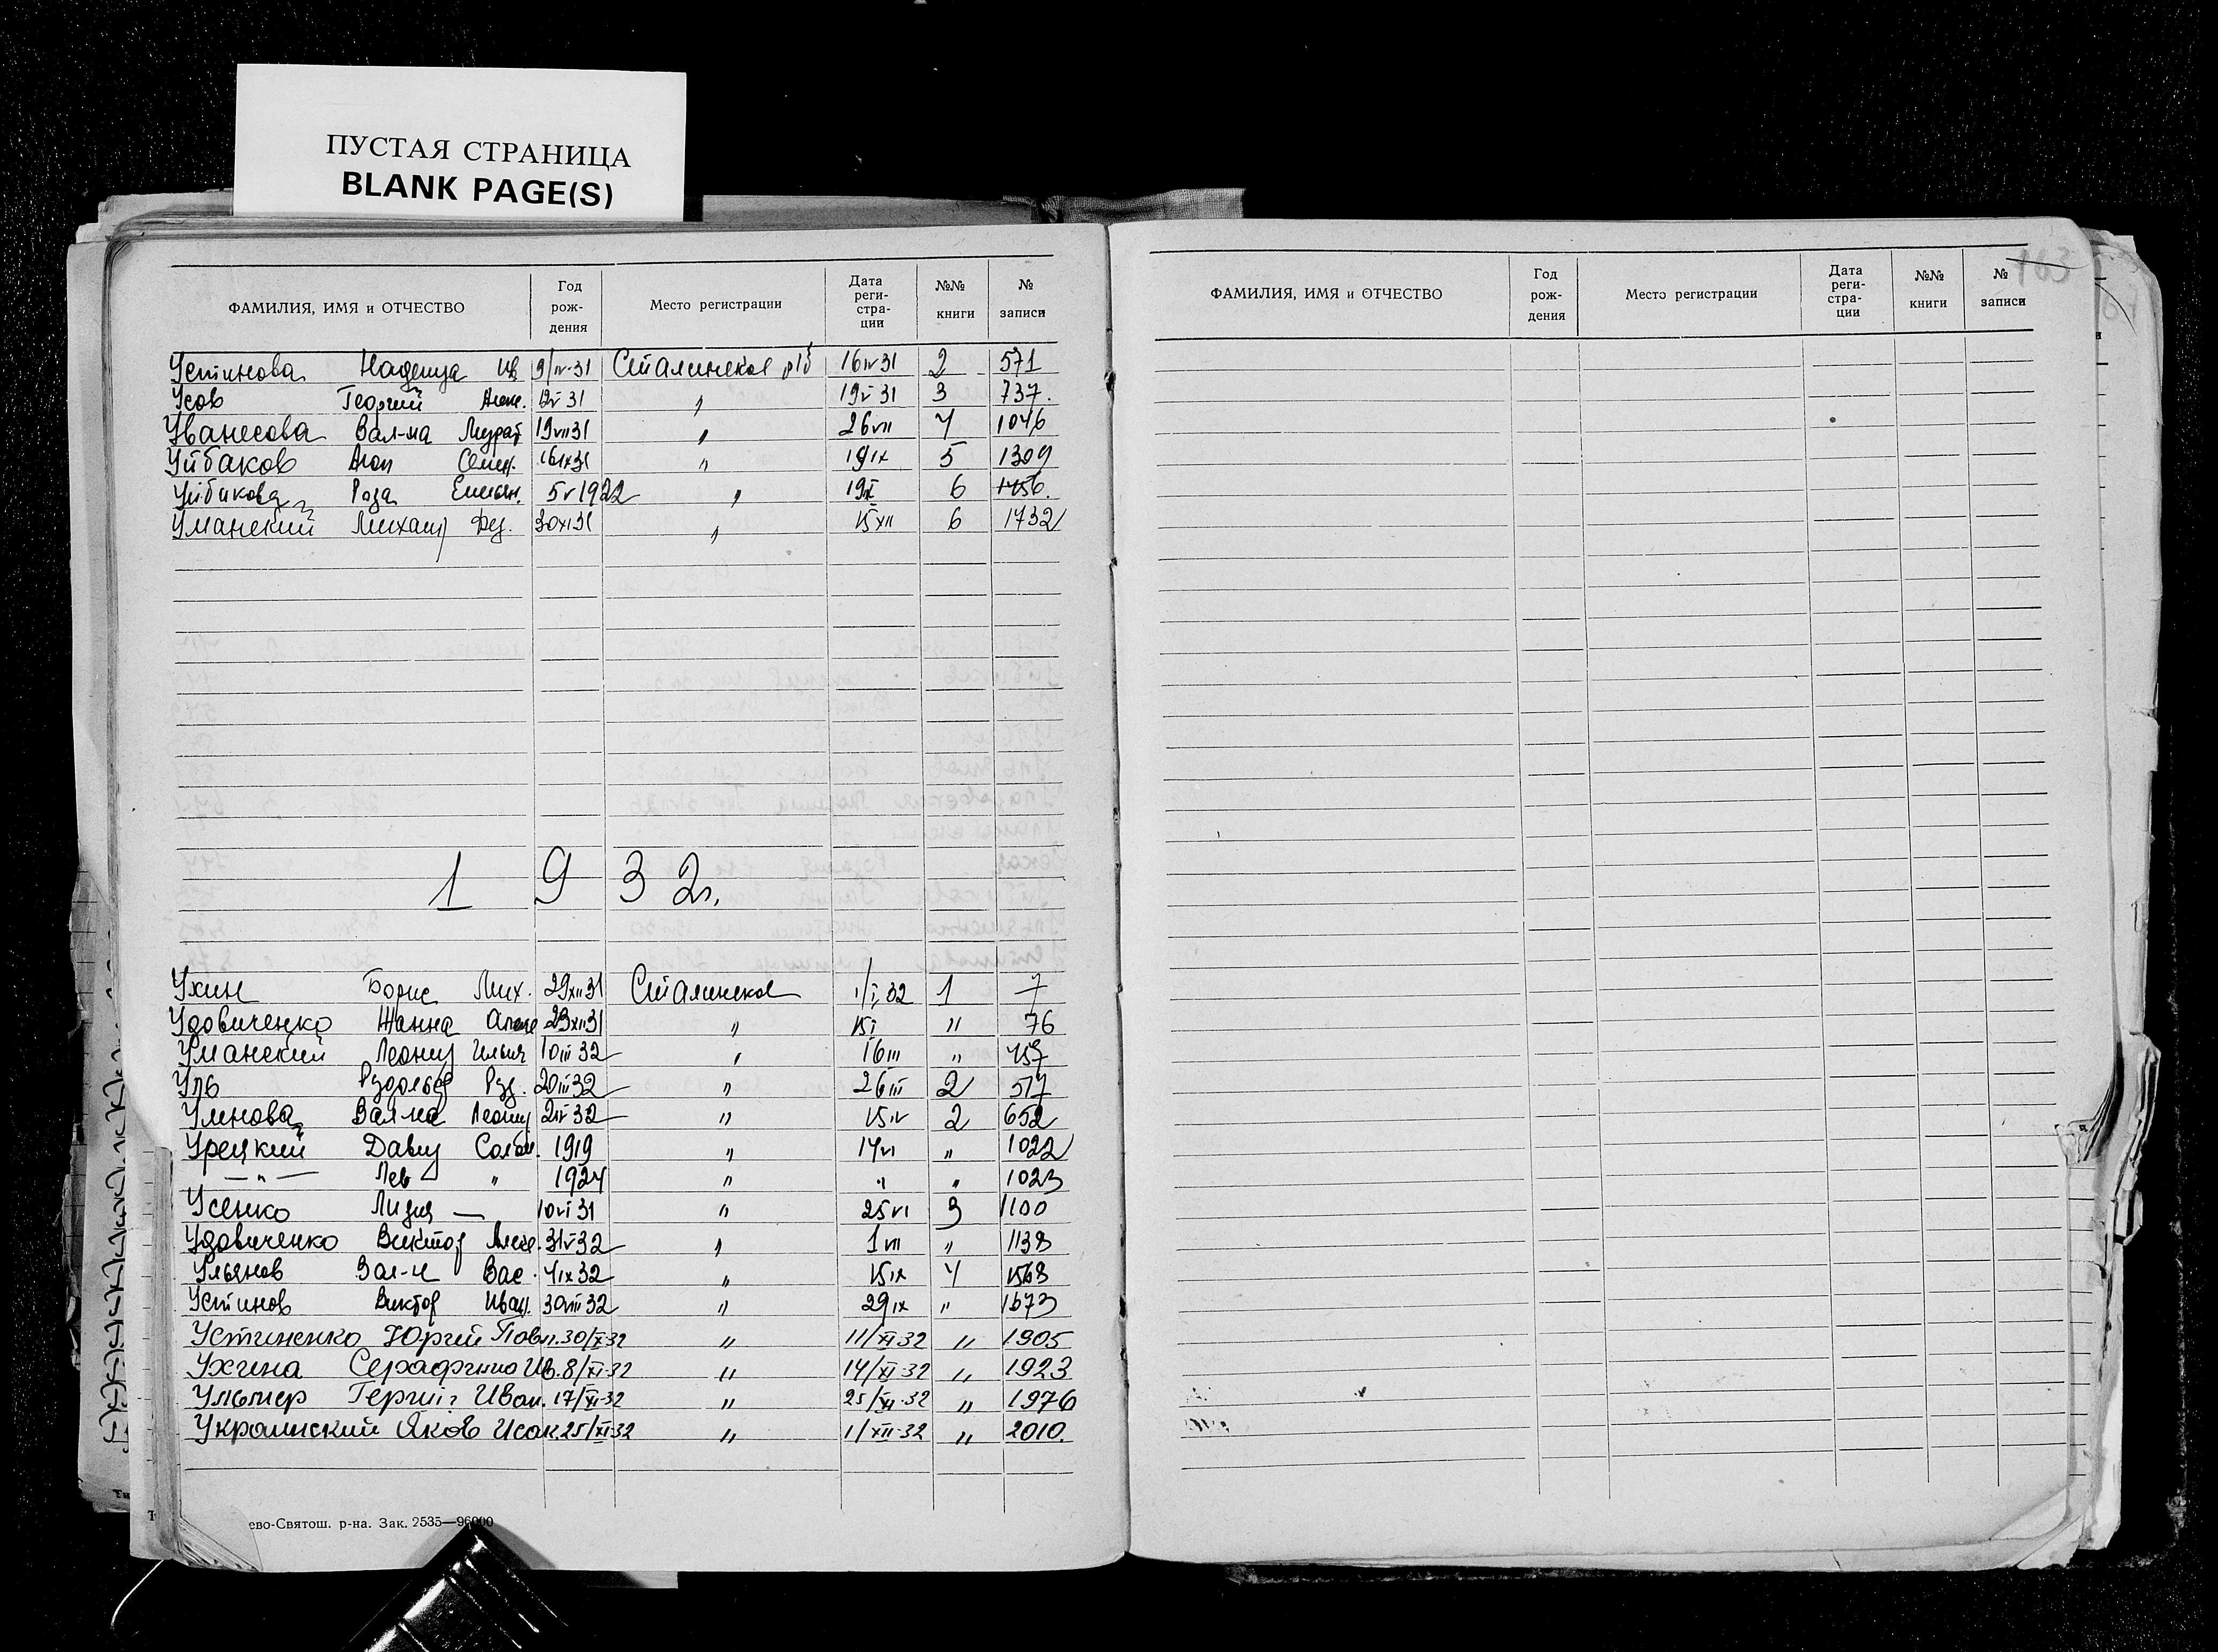 ПУСТАЯ СТРАНИЦА
BLANK PAGE(S)
ФАМИЛИЯ, ИМЯ и ОТЧЕСТВО Год рож-дения Место регистрации Дата реги-стра-ции №№ книги № записи
Устинова Надежда Ив 9/IV-31 Сталинское р/б 16 IV 31 2 571
Усов Георгий Алекс. 12 V 31 " 19 V 31 3 737.
Уванесова Вал-на Мурат 19 VII 31 " 26 VII 4 1046
Уйбаков Семен. 16 IX 31 " 19 IX 5 1309
Уйбакова Роза Емельян. 5 V 1922 " 19 X 6 1456.
Уманский Михаил Фед. 30 XI 31 " 15 XII 6 1732
1932г.
Ухин Борис Мих. 29 XII 31 Сталинское 1/I 32 1 7
Удовиченко Жанна Алекс 23 XII 31 " 15 I " 76
Уманский Леонид Ильич 10 III 32 " 16 III " 457
Уль Рудольф Руд. 20 III 32 " 26 III 2 517
Уминова Вал-на Леонид 2 IV 32 " 15 IV 2 652
Урецкий Давид Солом. 1919 " 14 VI " 1022
— " — Лев " 1924 " " " 1023
Усенко Лидия — 10 VI 31 " 25 VI 3 1100
Удовиченко Виктор Алекс. 31 V 32 " 1 VII " 1138
Ульянов Вал-н Вас. 4 IX 32 " 15 IX 4 1568
Устинов Виктор Иван. 30 VIII 32 " 29 IX " 1673
Устиненко Юрий Павл. 30/X-32 " 11/XI-32 " 1905
Ухгина Серафима Ив. 8/XI-32 " 14/XI-32 " 1923
Ульмер Иван. 17/XI-32 " 25/XI-32 " 1976
Украинский Яков Исак. 25/XI-32 " 1/XII-32 " 2010.
ево-Святош. р-на. Зак. 2535—96000
ФАМИЛИЯ, ИМЯ и ОТЧЕСТВО Год рож-дения Место регистрации Дата реги-стра-ции №№ книги № записи